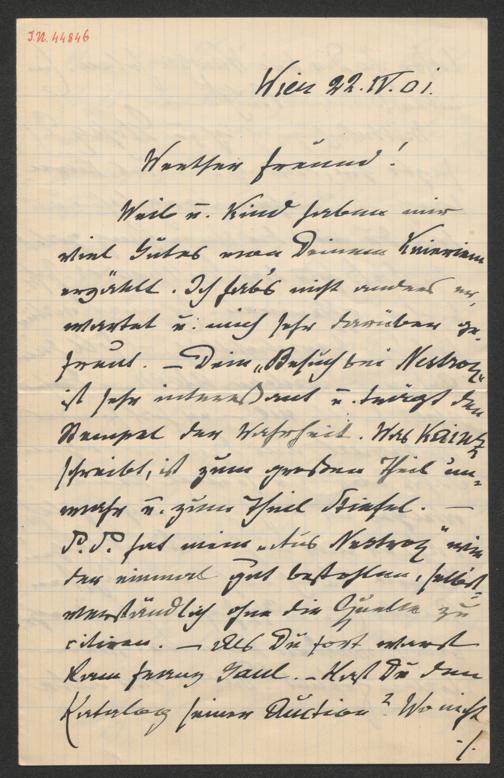 I.N. 44846
Wien 22.IV.01.
Werther Freund!
Weib u. Kind haben mir
viel Gutes von Deinem Knieriem
erzählt. Ich hab's nicht anders er-
wartet u. mich sehr darüber ge-
freut. – Dein „Besuch bei Nestroy"
ist sehr interessant u. trägt den
Stempel der Wahrheit. Was Kainz
schreibt, ist zum großen Theil un-
wahr u. zum Theil Stiefel. –
P.P. hat mein „Aus Nestroy" wie-
der einmal gut bestohlen, selbst-
verständlich ohne die Quelle zu
citiren. – Als Du fort warst
kam Franz Gaul. – Hast Du den
Katalog seiner Auction? Wo nicht
./.